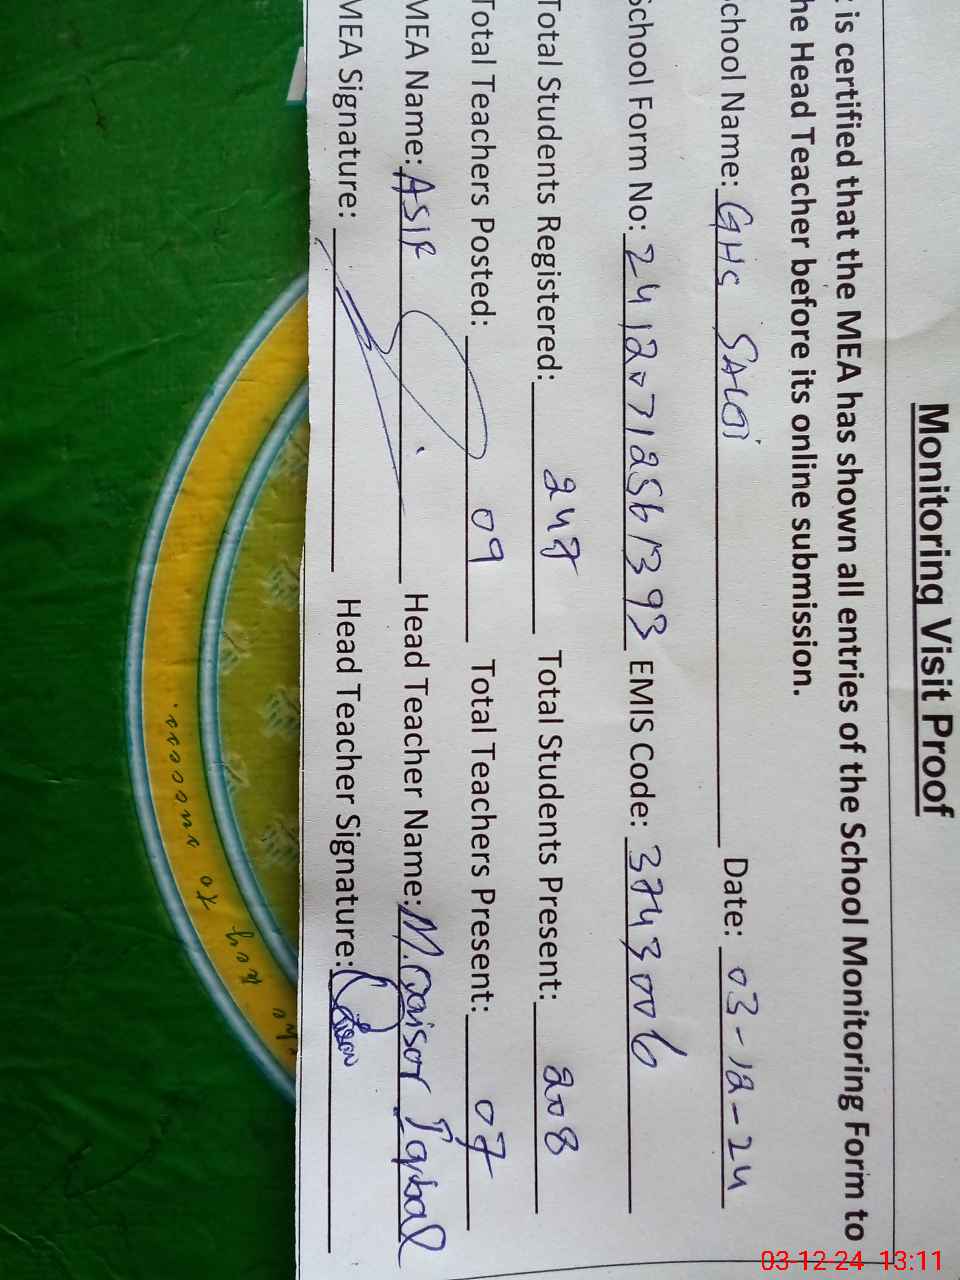 Monitoring Visit Proof
t is certified that the MEA has shown all entries of the School Monitoring Form to
he Head Teacher before its online submission.
School Name: GHS SALOI Date: 03-12-24
School Form No: 24120712561393 EMIS Code: 3743006
Total Students Registered: 247 Total Students Present: 208
Total Teachers Posted: 09 Total Teachers Present: 07
MEA Name: ASIF Head Teacher Name: M. Qaisar Iqbal
MEA Signature: Head Teacher Signature:
key to success.
03-12-24 13:11